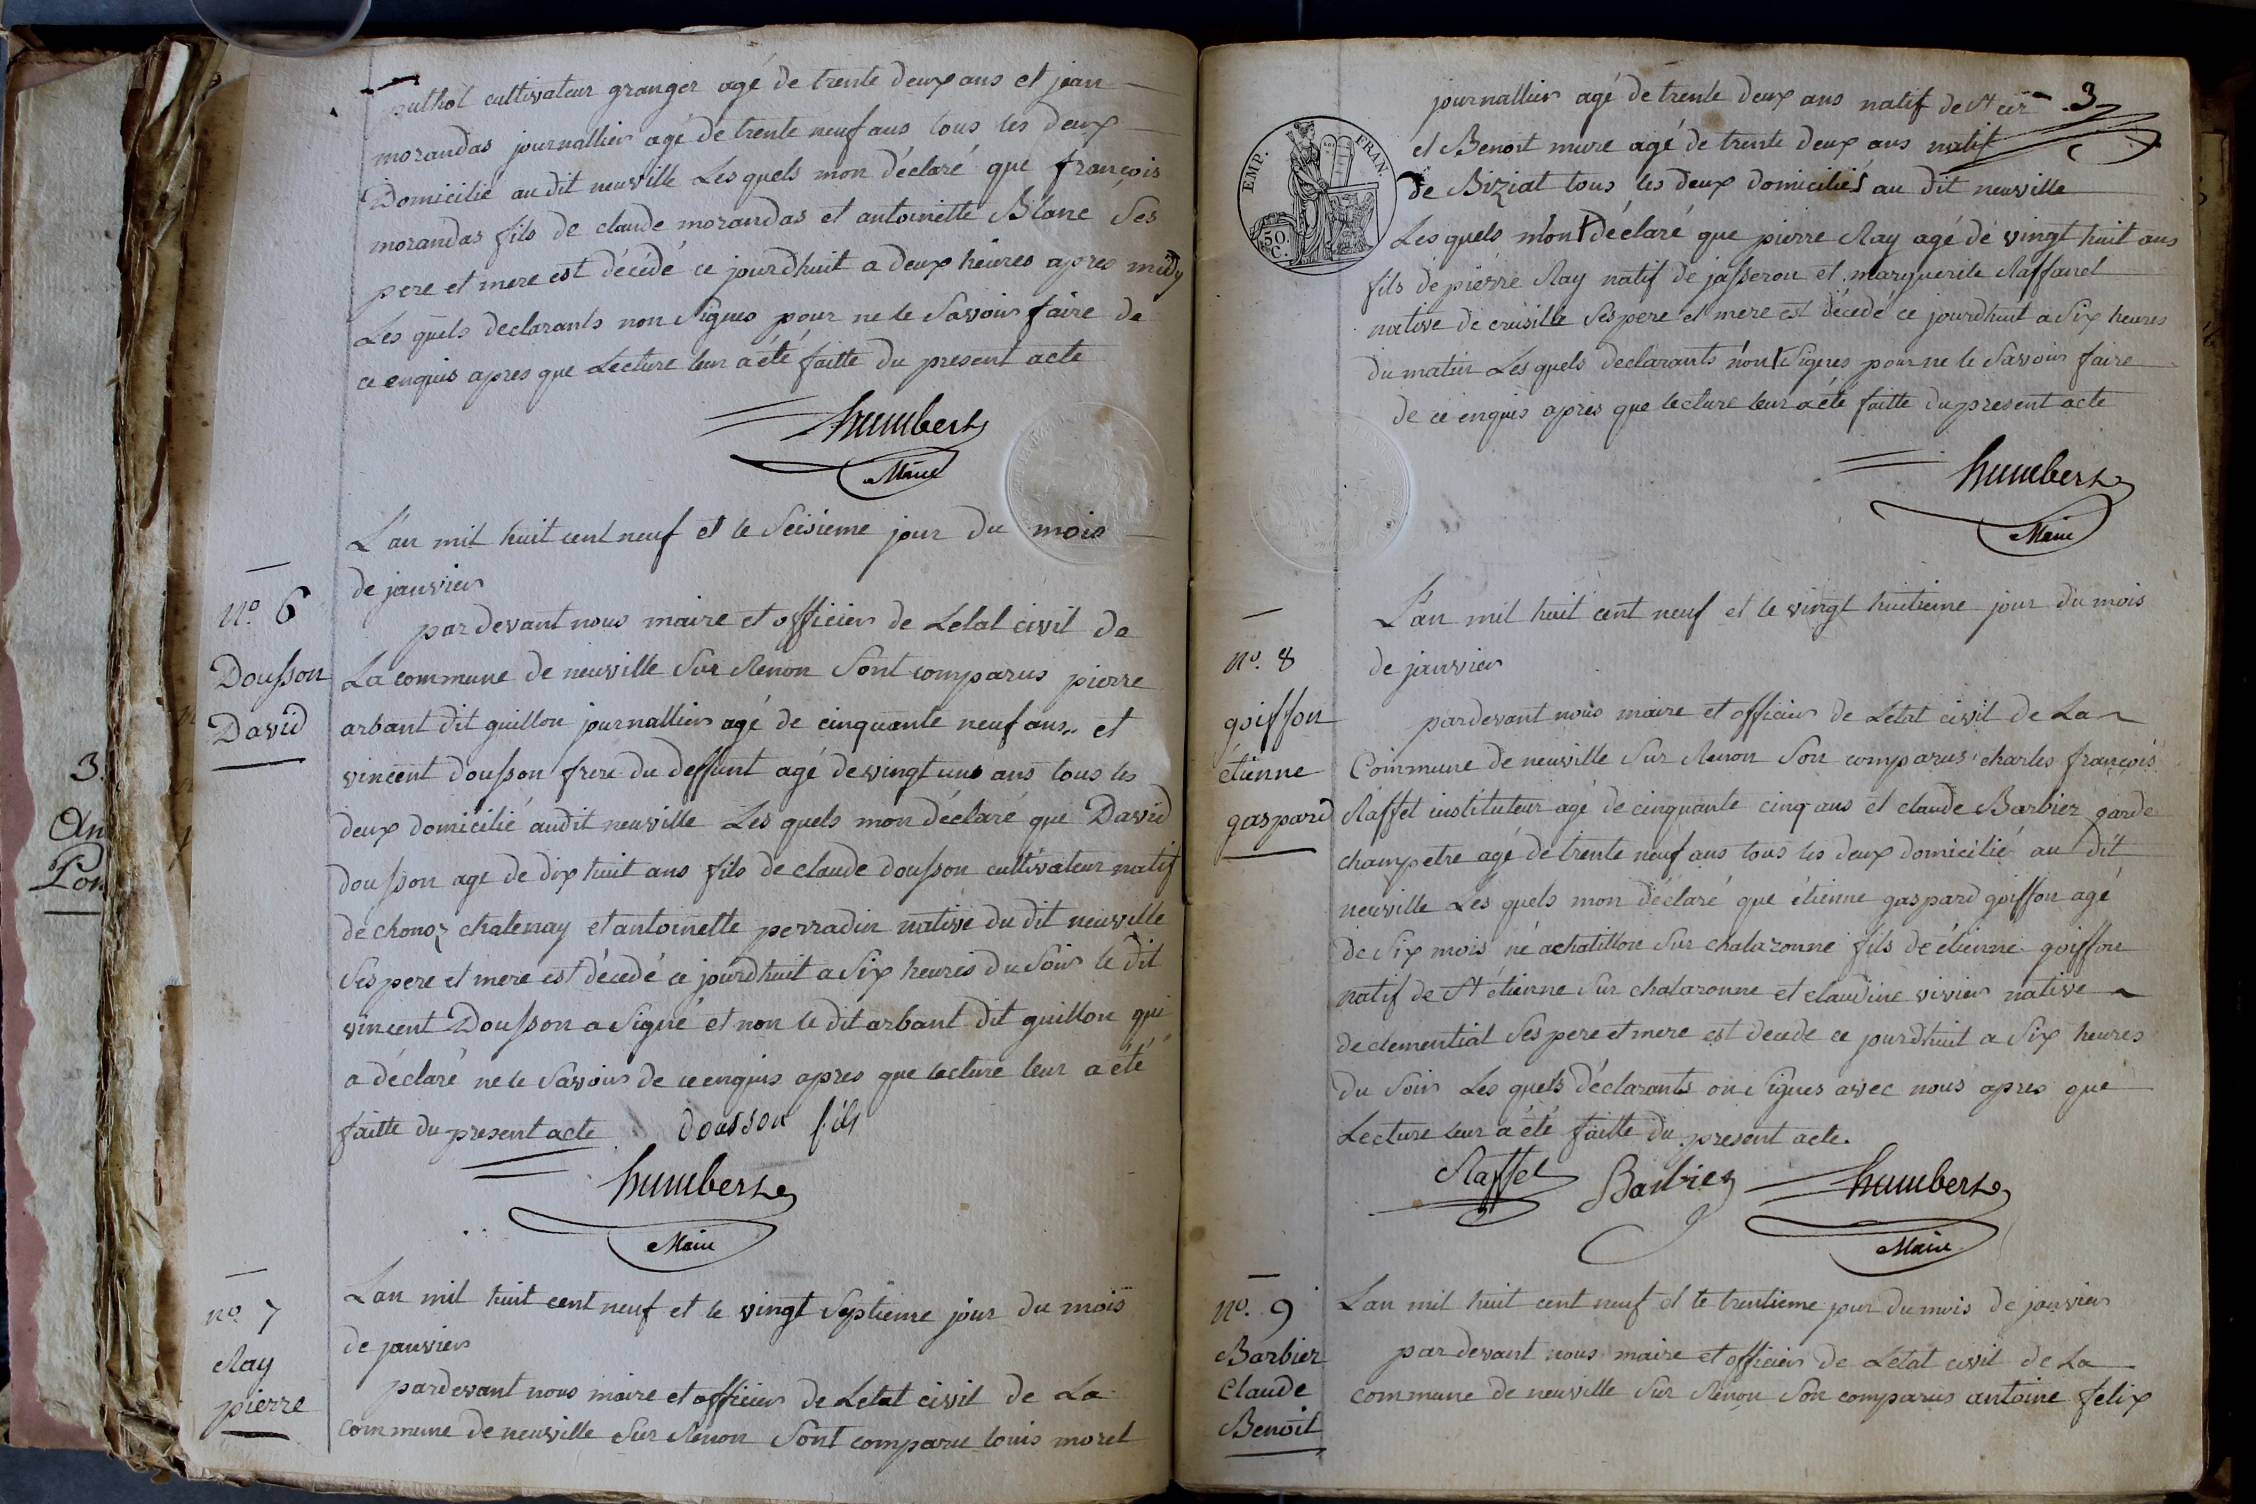 puthot cultivateur granger agé de trente deux ans et jean
morandas journallier agé de trente neuf ans tous les deux
Domicilié au dit neuville Les quels mon déclaré que françois
morandas fils de claude morandas et antoinette Blanc Ses
pere et mere est décédé ce jourdhuit a deux heures apres midy
Les quels declarants non Signes pour ne le Savoir faire de
ce enquis apres que Lecture leur a été faitte du present acte
humbert
Maire
L'an mil huit cent neuf et le Seisieme jour du mois
de janvier
no. 6
Dousson
David
par devant nous maire et officier de Letat civil de
La commune de neuville Sur Renon Sont comparus pierre
arbant dit guillon journallier agé de cinquante neuf ans.. et
vincent dousson frere du deffunt agé de vingt une ans tous les
deux domicilié audit neuville Les quels mon déclaré que David
dousson age de dix huit ans fils de claude dousson cultivateur natif
de chonoz chatenay et antoinette perradin native du dit neuville
Ses pere et mere est décedé ce jourdhuit a Six heures du Soir le dit
vincent Dousson a Signé et non le dit arbant dit guillon qui
a déclaré ne le Savoir de ce enquis apres que lecture leur a été
faitte du present acte dousson fils
humbert
Maire
no 7
Ray
pierre
Lan mil huit cent neuf et le vingt Septieme jour du mois
de janvier
pardevant nous maire et officier de Letat civil de La
commune de neuville Sur Renon Sont comparu louis morel
3.
An
Pon
3
journallier agé de trente deux ans natif de St cir
et Benoit mure agé de trente deux ans natif
de Biziat tous les deux domiciliés au dit neuville
EMP. FRAN.
50.
C.
Les quels mon déclaré que pierre Ray agé de vingt huit ans
fils de pierre Ray natif de jasseron et marguerite Raffanel
native de crusille Ses pere et mere est décedé ce jourdhuit a Six heures
du matin Les quels declarants non Signes pour ne le Savoir faire
de ce enquis apres que lecture leur a été faitte du present acte
humbert
Maire
no. 8
goiffon
étienne
gaspard
L'an mil huit cent neuf et le vingt huitieme jour du mois
de janvier
pardevant nous maire et officier de Letat civil de La
Commune de neuville Sur Renon Son comparus charles françois
Raffet instituteur agé de cinquante cinq ans et claude Barbier garde
champetre agé de trente neuf ans tous les deux domicilié au dit
neuville Les quels mon déclaré que étienne gaspard goiffon agé
de Six mois né a chatillon Sur chalaronne fils de étienne goiffon
natif de St étienne Sur chalaronne et claudine vivier native
de clemential Ses pere et mere est decede ce jourdhuit a Six heures
du Soir Les quels déclarants on Signes avec nous apres que
Lecture leur a été faitte du present acte.
Raffet Barbier humbert
Maire
no. 9
Barbier
Claude
Benoit
Lan mil huit cent neuf et le trentieme jour du mois de janvier
par devant nous maire et officier de Letat civil de La
commune de neuville Sur Renon Son comparus antoine felix